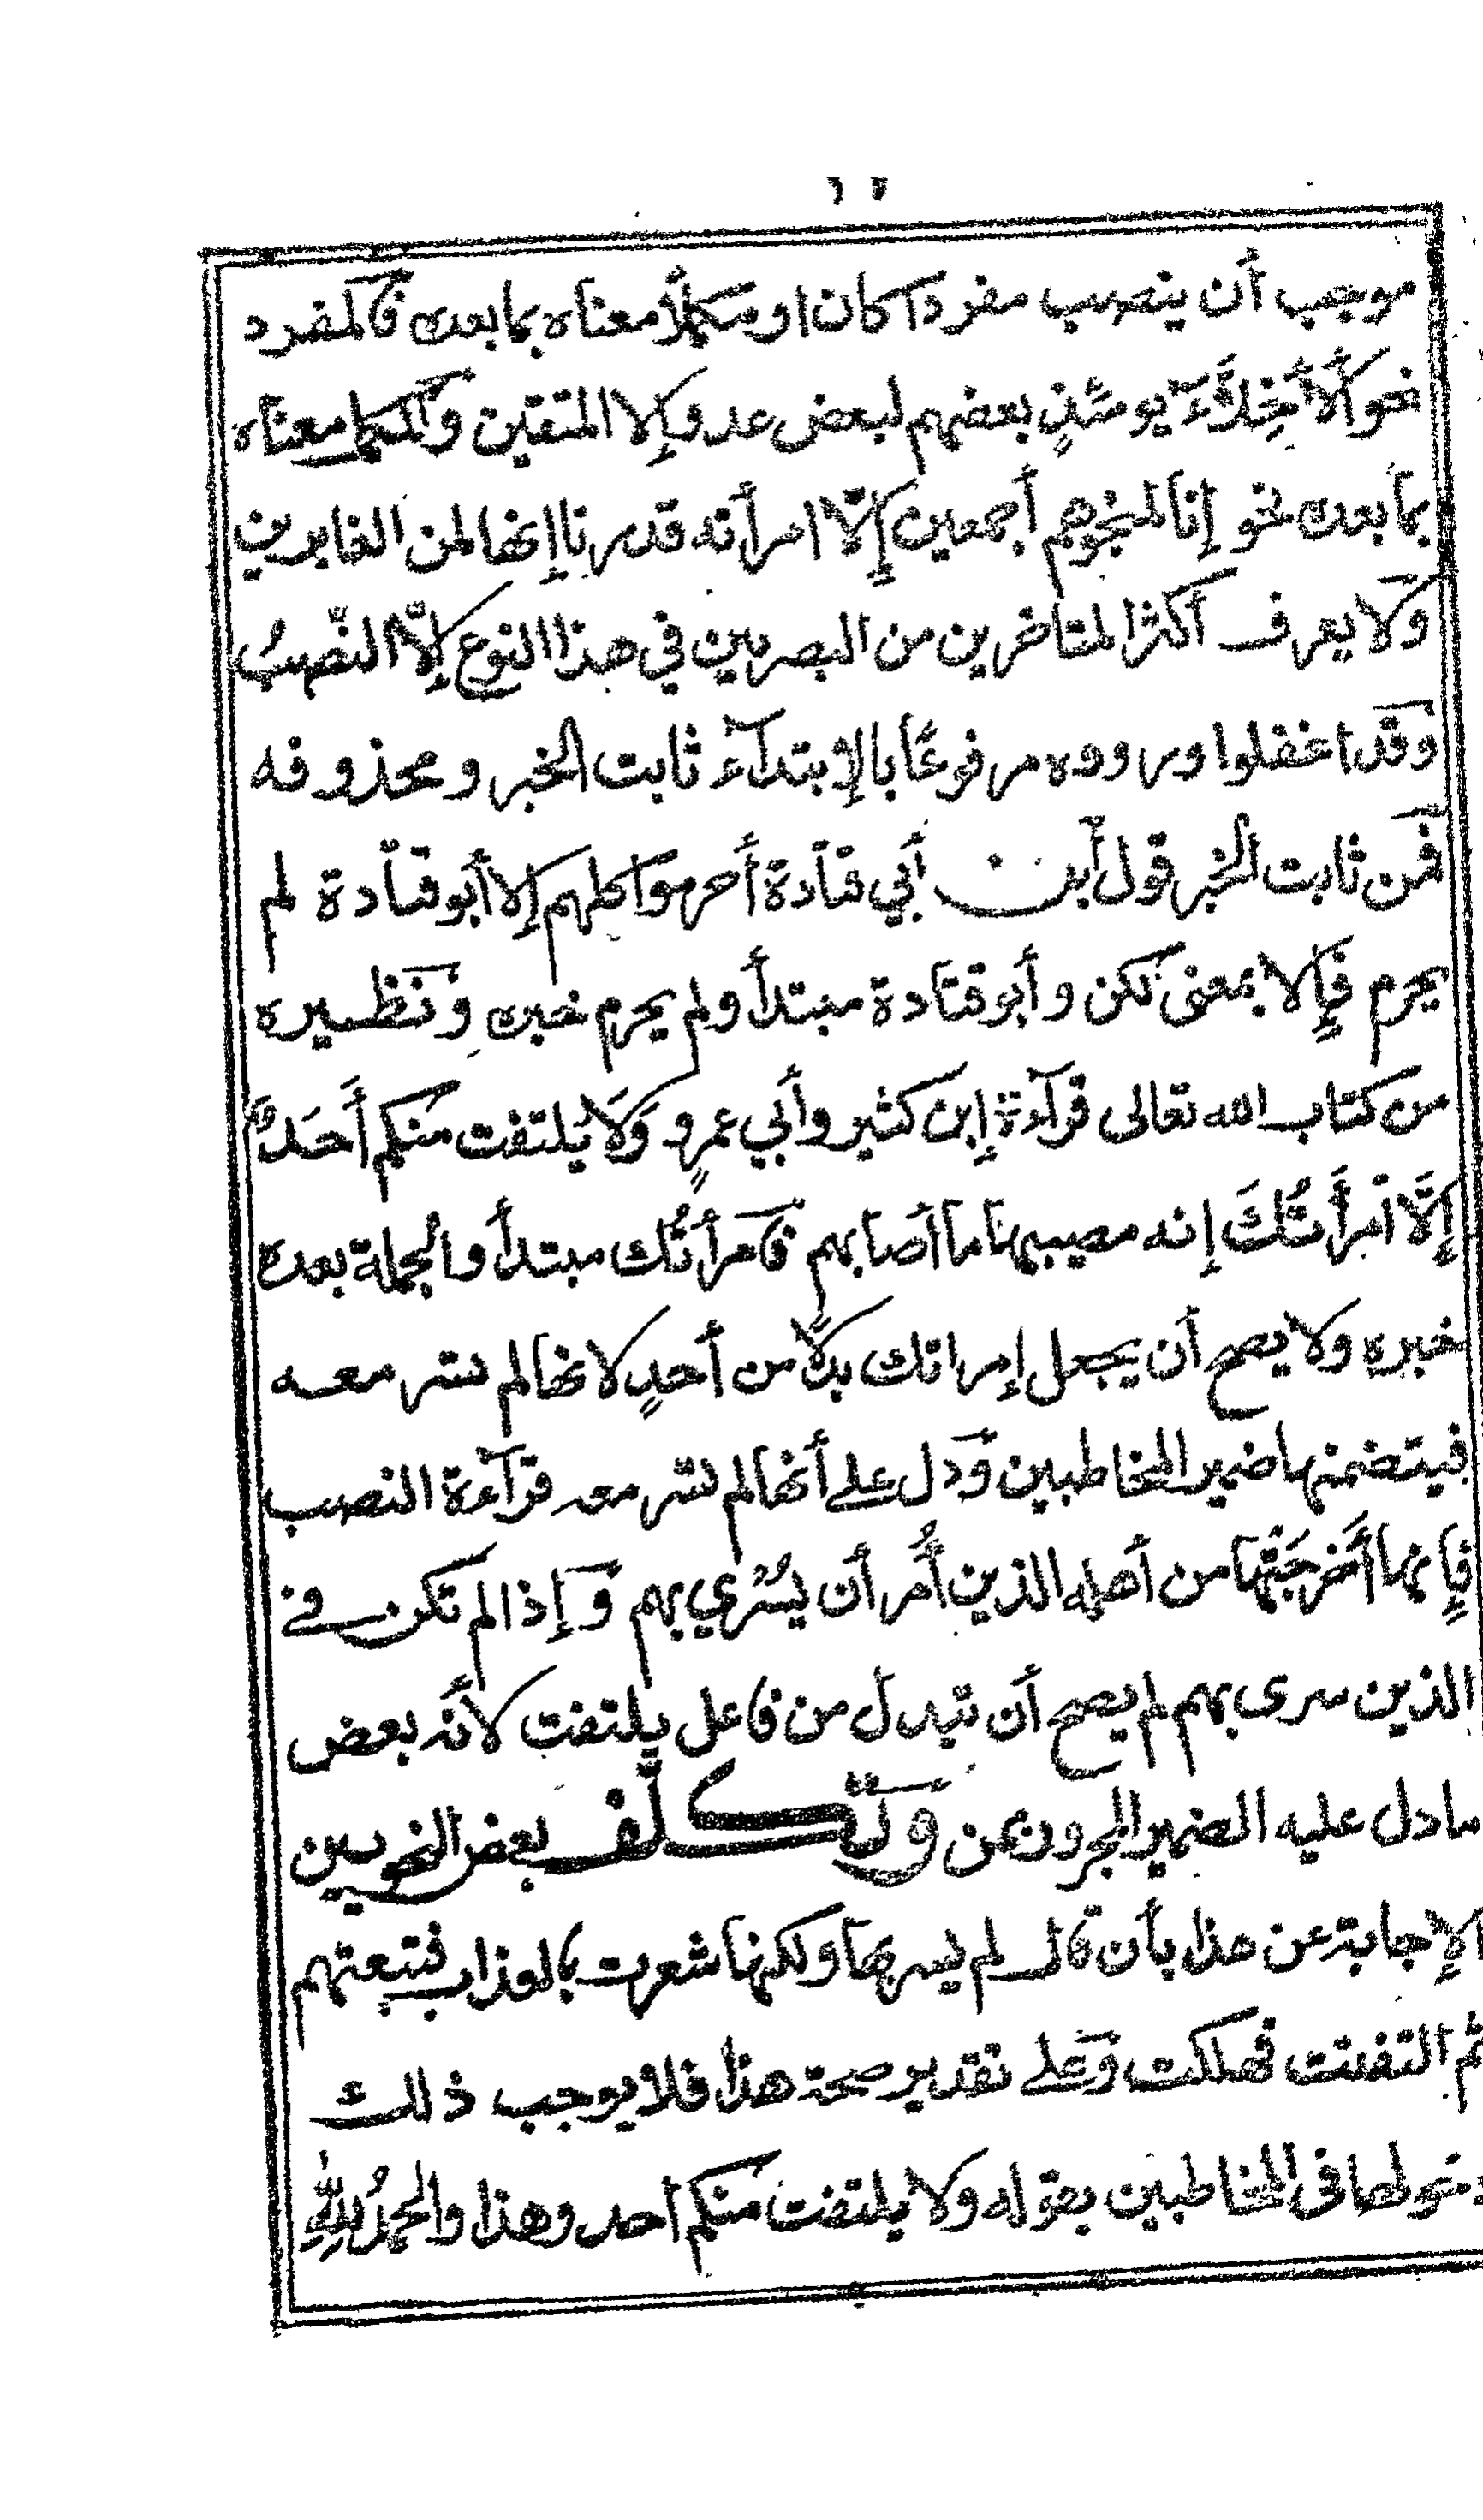 موجب أن ينصب مفردا كان او مكملاً معناه بما بعده فالمفرد
نحو الأَخِلَّاءُ يومئذٍ بعضهم لبعض عدو إلا المتقين والمكمل معناه
بما بعده نحو إنا لمنجوهم أجمعين إلّا امرأته قدرنا إنها لمن الغابرين
ولا يعرف أكثر المتاخرين من البصريين في هذا النوع إلّا النّصبُ
وقد اغفلوا وروده مرفوعًا بالإبتدآء ثابت الخبر ومحذوفه
فمن ثابت الخبر قول أبن أبي قتادة أحرموا كلهم إلا أبو قتادة لم
يحرم فإلا بمعنى لكن وأبو قتادة مبتدأ ولم يحرم خبره ونظيره
من كتاب الله تعالى قرآءة إبن كثير وأبي عمرٍو وَلَا يُلتفت منكم أَحَدٌ
إِلَّا امرأَتُكَ إنه مصيبها ما أصابهم فامرأتُك مبتدأ والجملة بعده
خبره ولا يصح أن يجعل إمراتك بدلًا من أحدٍ لانها لم تسر معه
فيتضمنها ضمير المخاطبين ودل على أنها لم تسر معه قرآءة النصب
فإنها أَخرجَتْها من أهله الذين أُمر أن يُسْري بهم وإذا لم تكن في
الذين سرى بهم لم يصح أن تبدل من فاعل يلتفت لانّه بعض
مادل عليه الضمير المجرور بمن وتكلّف بعض النحويين
الإجابة عن هذا بأن قال لم يسر بها ولكنها شعرت بالعذاب فتبعتهم
ثم التفتت فهلكت وعلى تقدير صحة هذا فلا يوجب ذلك
دخولها فى المخاطبين بقوله ولا يلتفت منكم احد وهذا والحمدُ لِلّٰهِ